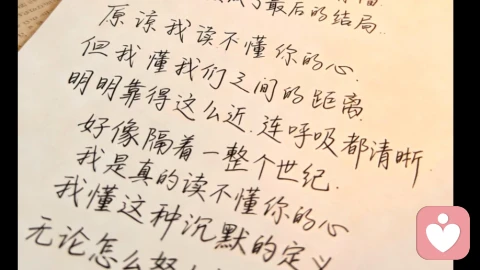 了最后的结局.
原谅我读不懂你的心.
但我懂我们之间的距离.
明明靠得这么近.连呼吸都清晰.
好像隔着一整个世纪.
我是真的读不懂你的心
我懂这种沉默的定义
无论怎么努